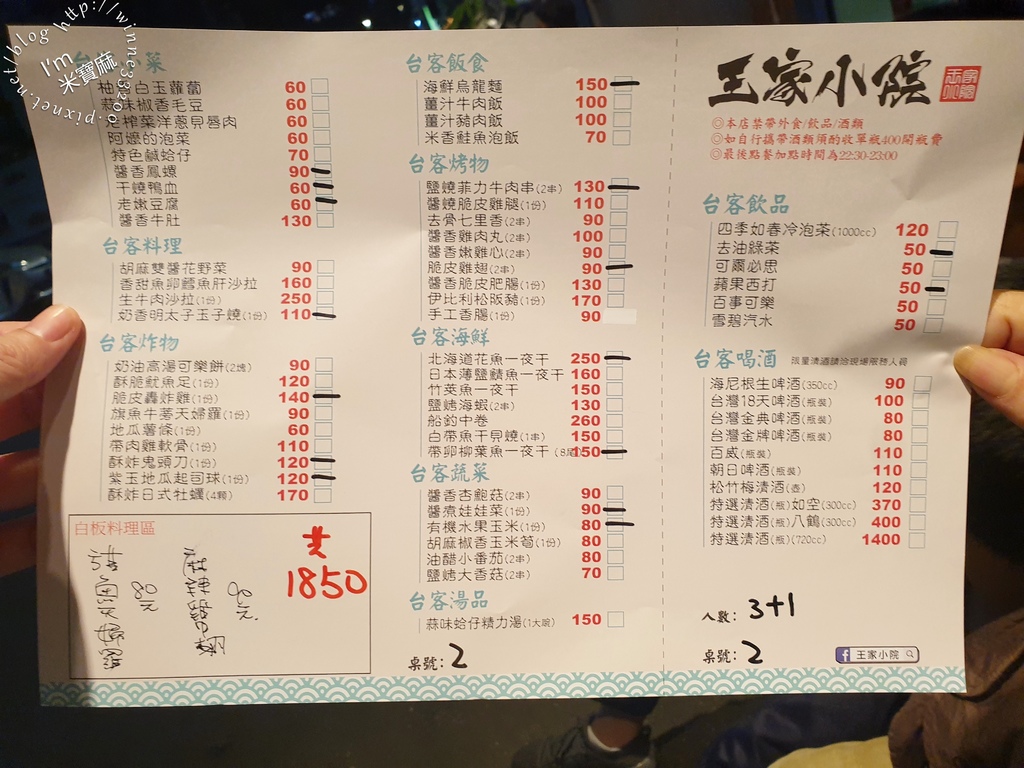 http://winne33200.pixnet.net/blog
I'm
米寶麻
小菜
柚 白玉蘿蔔 60
蒜味椒香毛豆 60
老榨菜洋蔥貝唇肉 60
阿嬤的泡菜 60
特色鹹蛤仔 70
醬香鳳螺 90
干燒鴨血 60
老嫩豆腐 60
醬香牛肚 130
台客料理
胡麻雙醬花野菜 90
香甜魚卵鱈魚肝沙拉 160
生牛肉沙拉(1份) 250
奶香明太子玉子燒(1份) 110
台客炸物
奶油高湯可樂餅(2塊) 90
酥脆魷魚足(1份) 120
脆皮轟炸雞(1份) 140
旗魚牛蒡天婦羅(1份) 90
地瓜薯條(1份) 60
帶肉雞軟骨(1份) 110
酥炸鬼頭刀(1份) 120
紫玉地瓜起司球(1份) 120
酥炸日式牡蠣(4顆) 170
白板料理區
麻辣鴨翅
90元
80元
共
1850
台客飯食
海鮮烏龍麵 150
薑汁牛肉飯 100
薑汁豬肉飯 100
米香鮭魚泡飯 70
台客烤物
鹽燒菲力牛肉串(2串) 130
醬燒脆皮雞腿(1份) 110
去骨七里香(2串) 90
醬香雞肉丸(2串) 100
醬香嫩雞心(2串) 90
脆皮雞翅(2串) 90
醬香脆皮肥腸(1份) 130
伊比利松阪豬(1份) 170
手工香腸(1份) 90
台客海鮮
北海道花魚一夜干 250
日本薄鹽鯖魚一夜干 160
竹莢魚一夜干 150
鹽烤海蝦(2串) 130
船釣中卷 260
白帶魚干貝燒(1串) 150
帶卵柳葉魚一夜干(8尾) 150
台客蔬菜
醬香杏鮑菇(2串) 90
醬煮娃娃菜(1份) 90
有機水果玉米(1份) 80
胡麻椒香玉米筍(1份) 80
油醋小番茄(2串) 80
鹽烤大香菇(2串) 70
台客湯品
蒜味蛤仔精力湯(1大碗) 150
桌號：2
王家小院
王家小院
◎本店禁帶外食/飲品/酒類
◎如自行攜帶酒類須酌收單瓶400開瓶費
◎最後點餐加點時間為22:30-23:00
台客飲品
四季如春冷泡茶(1000cc) 120
去油綠茶 50
可爾必思 50
蘋果西打 50
百事可樂 50
雪碧汽水 50
台客喝酒 限量清酒請洽現場服務人員
海尼根生啤酒(350cc) 90
台灣18天啤酒(瓶裝) 100
台灣金典啤酒(瓶裝) 80
台灣金牌啤酒(瓶裝) 80
百威(瓶裝) 110
朝日啤酒(瓶裝) 110
松竹梅清酒(壺) 120
特選清酒(瓶)如空(300cc) 370
特選清酒(瓶)八鶴(300cc) 400
特選清酒(瓶)(720cc) 1400
人數：3+1
桌號：2
f 王家小院